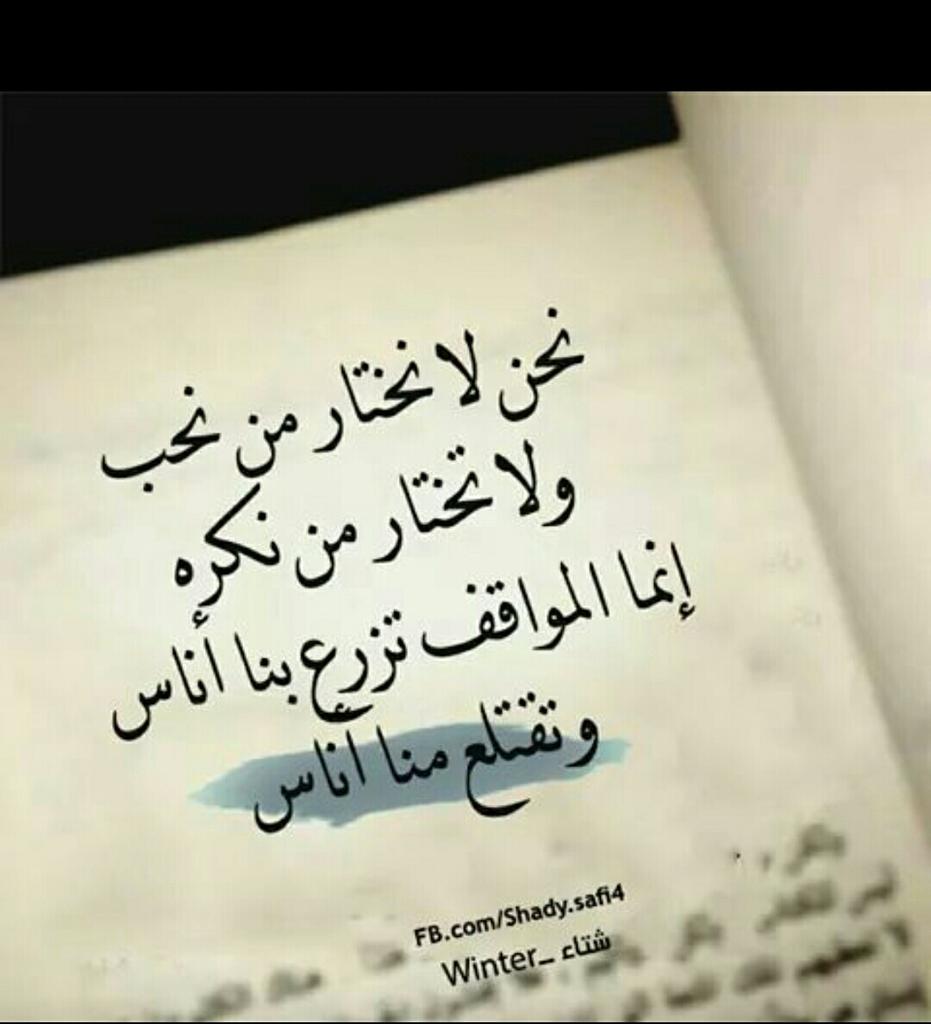 نحن لا نختار من نحب
ولا تختار من نكره
إنما المواقف تزرع بنا أناس
وتقتلع منا أناس
FB.com/Shady.safi4
Winter_شتاء